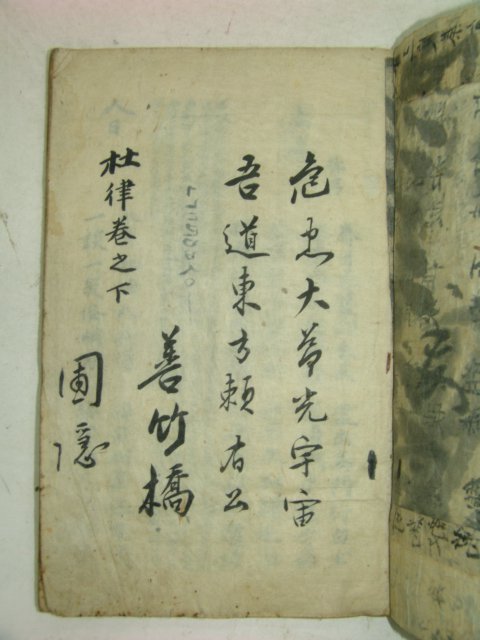 危忠大節光宇宙
吾道東方賴有公
善竹橋
杜律卷之下
圃隱